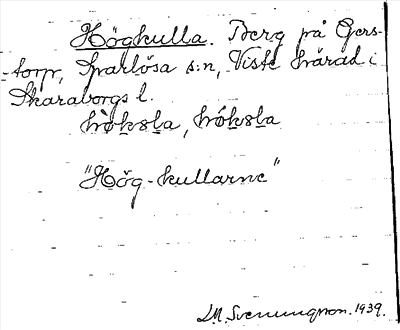 Högkulla. Berg på Gers-
torp, Sparlösa s:n, Viste härad i
Skaraborgs l.
"Hög-kullarne"
L.M. Svenungsson. 1939.